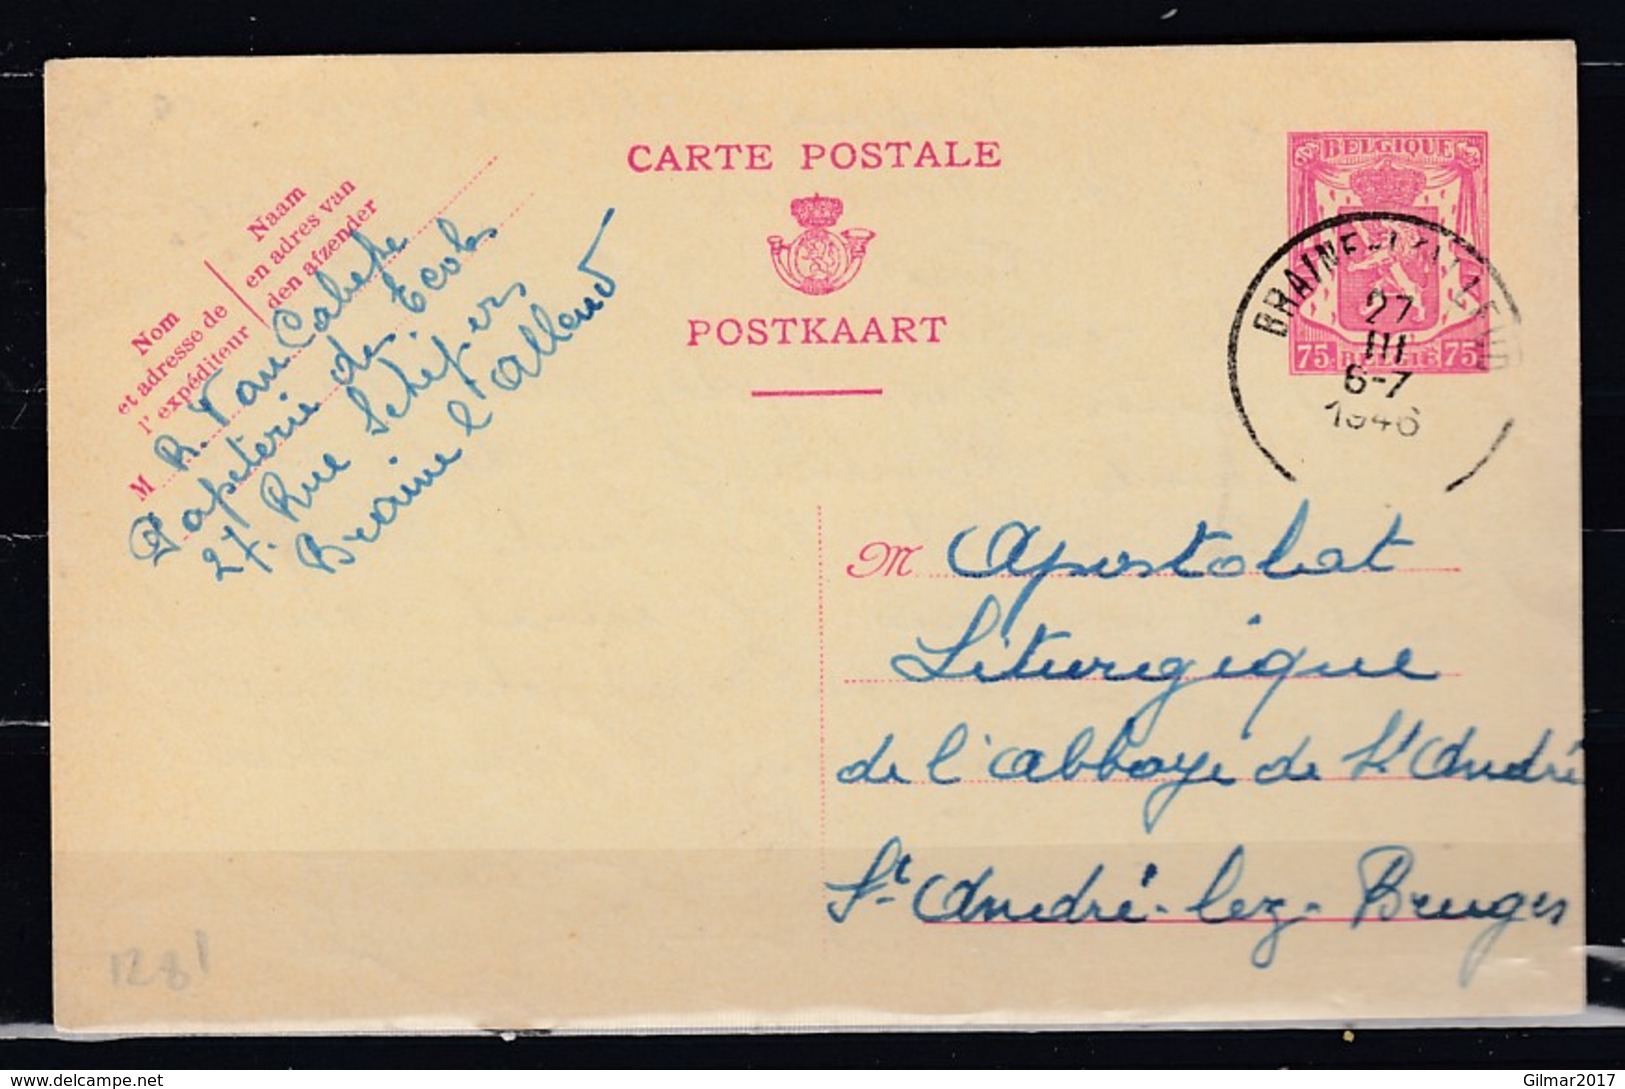 CARTE POSTALE
POSTKAART
BELGIQUE
75. BELGIE 75.
BRAINE-L'ALLEUD
27
III
6-7
1946
Naam
en adres van
den afzender
Nom
et adresse de
l'expéditeur
M R. Van Cabeke
Papeterie des Ecoles
27. Rue Schepers
Braine l'Alleud
M Apostolat
Liturgique
de l'abbaye de St André
St André-lez-Bruges
1281
delcampe.net
Gilmar2017